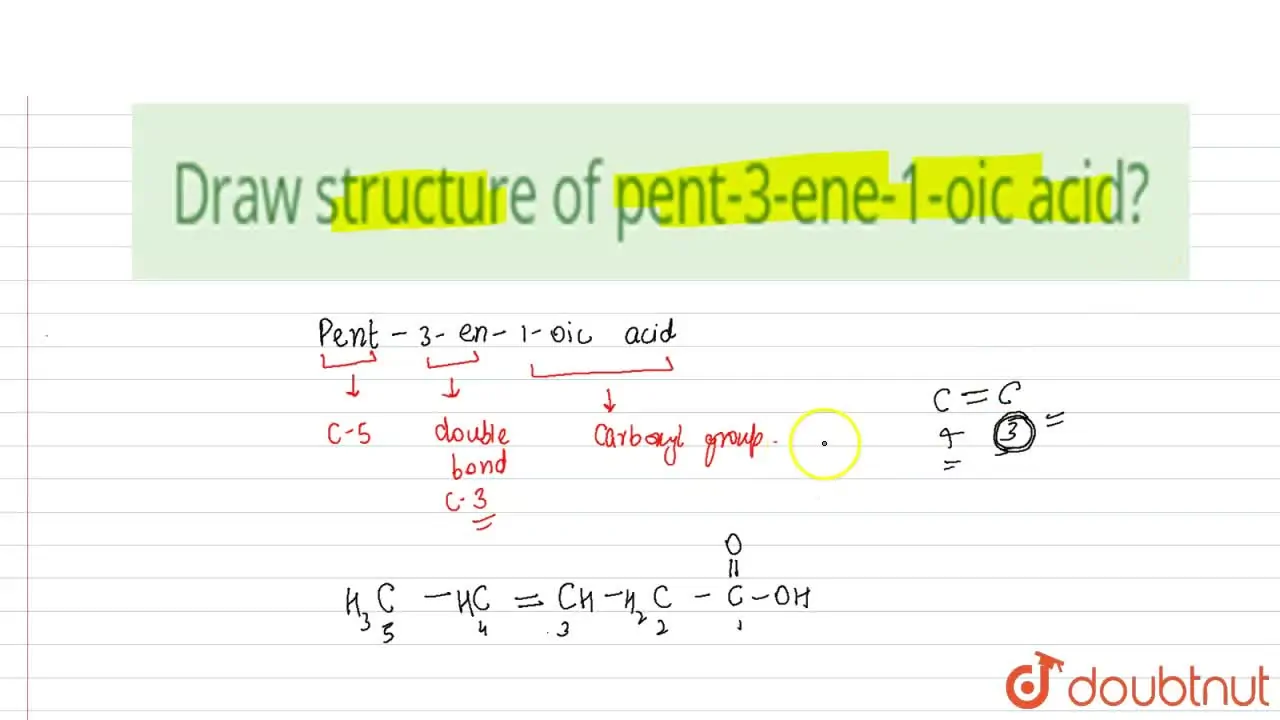 Draw structure of pent-3-ene-1-oic acid?
Pent - 3- en- 1- oic acid
C-5 double bond C-3 Carboxyl group.
C = C
4 3
O
H3C - HC = CH - H2C - C - OH
5 4 3 2 1
doubtnut